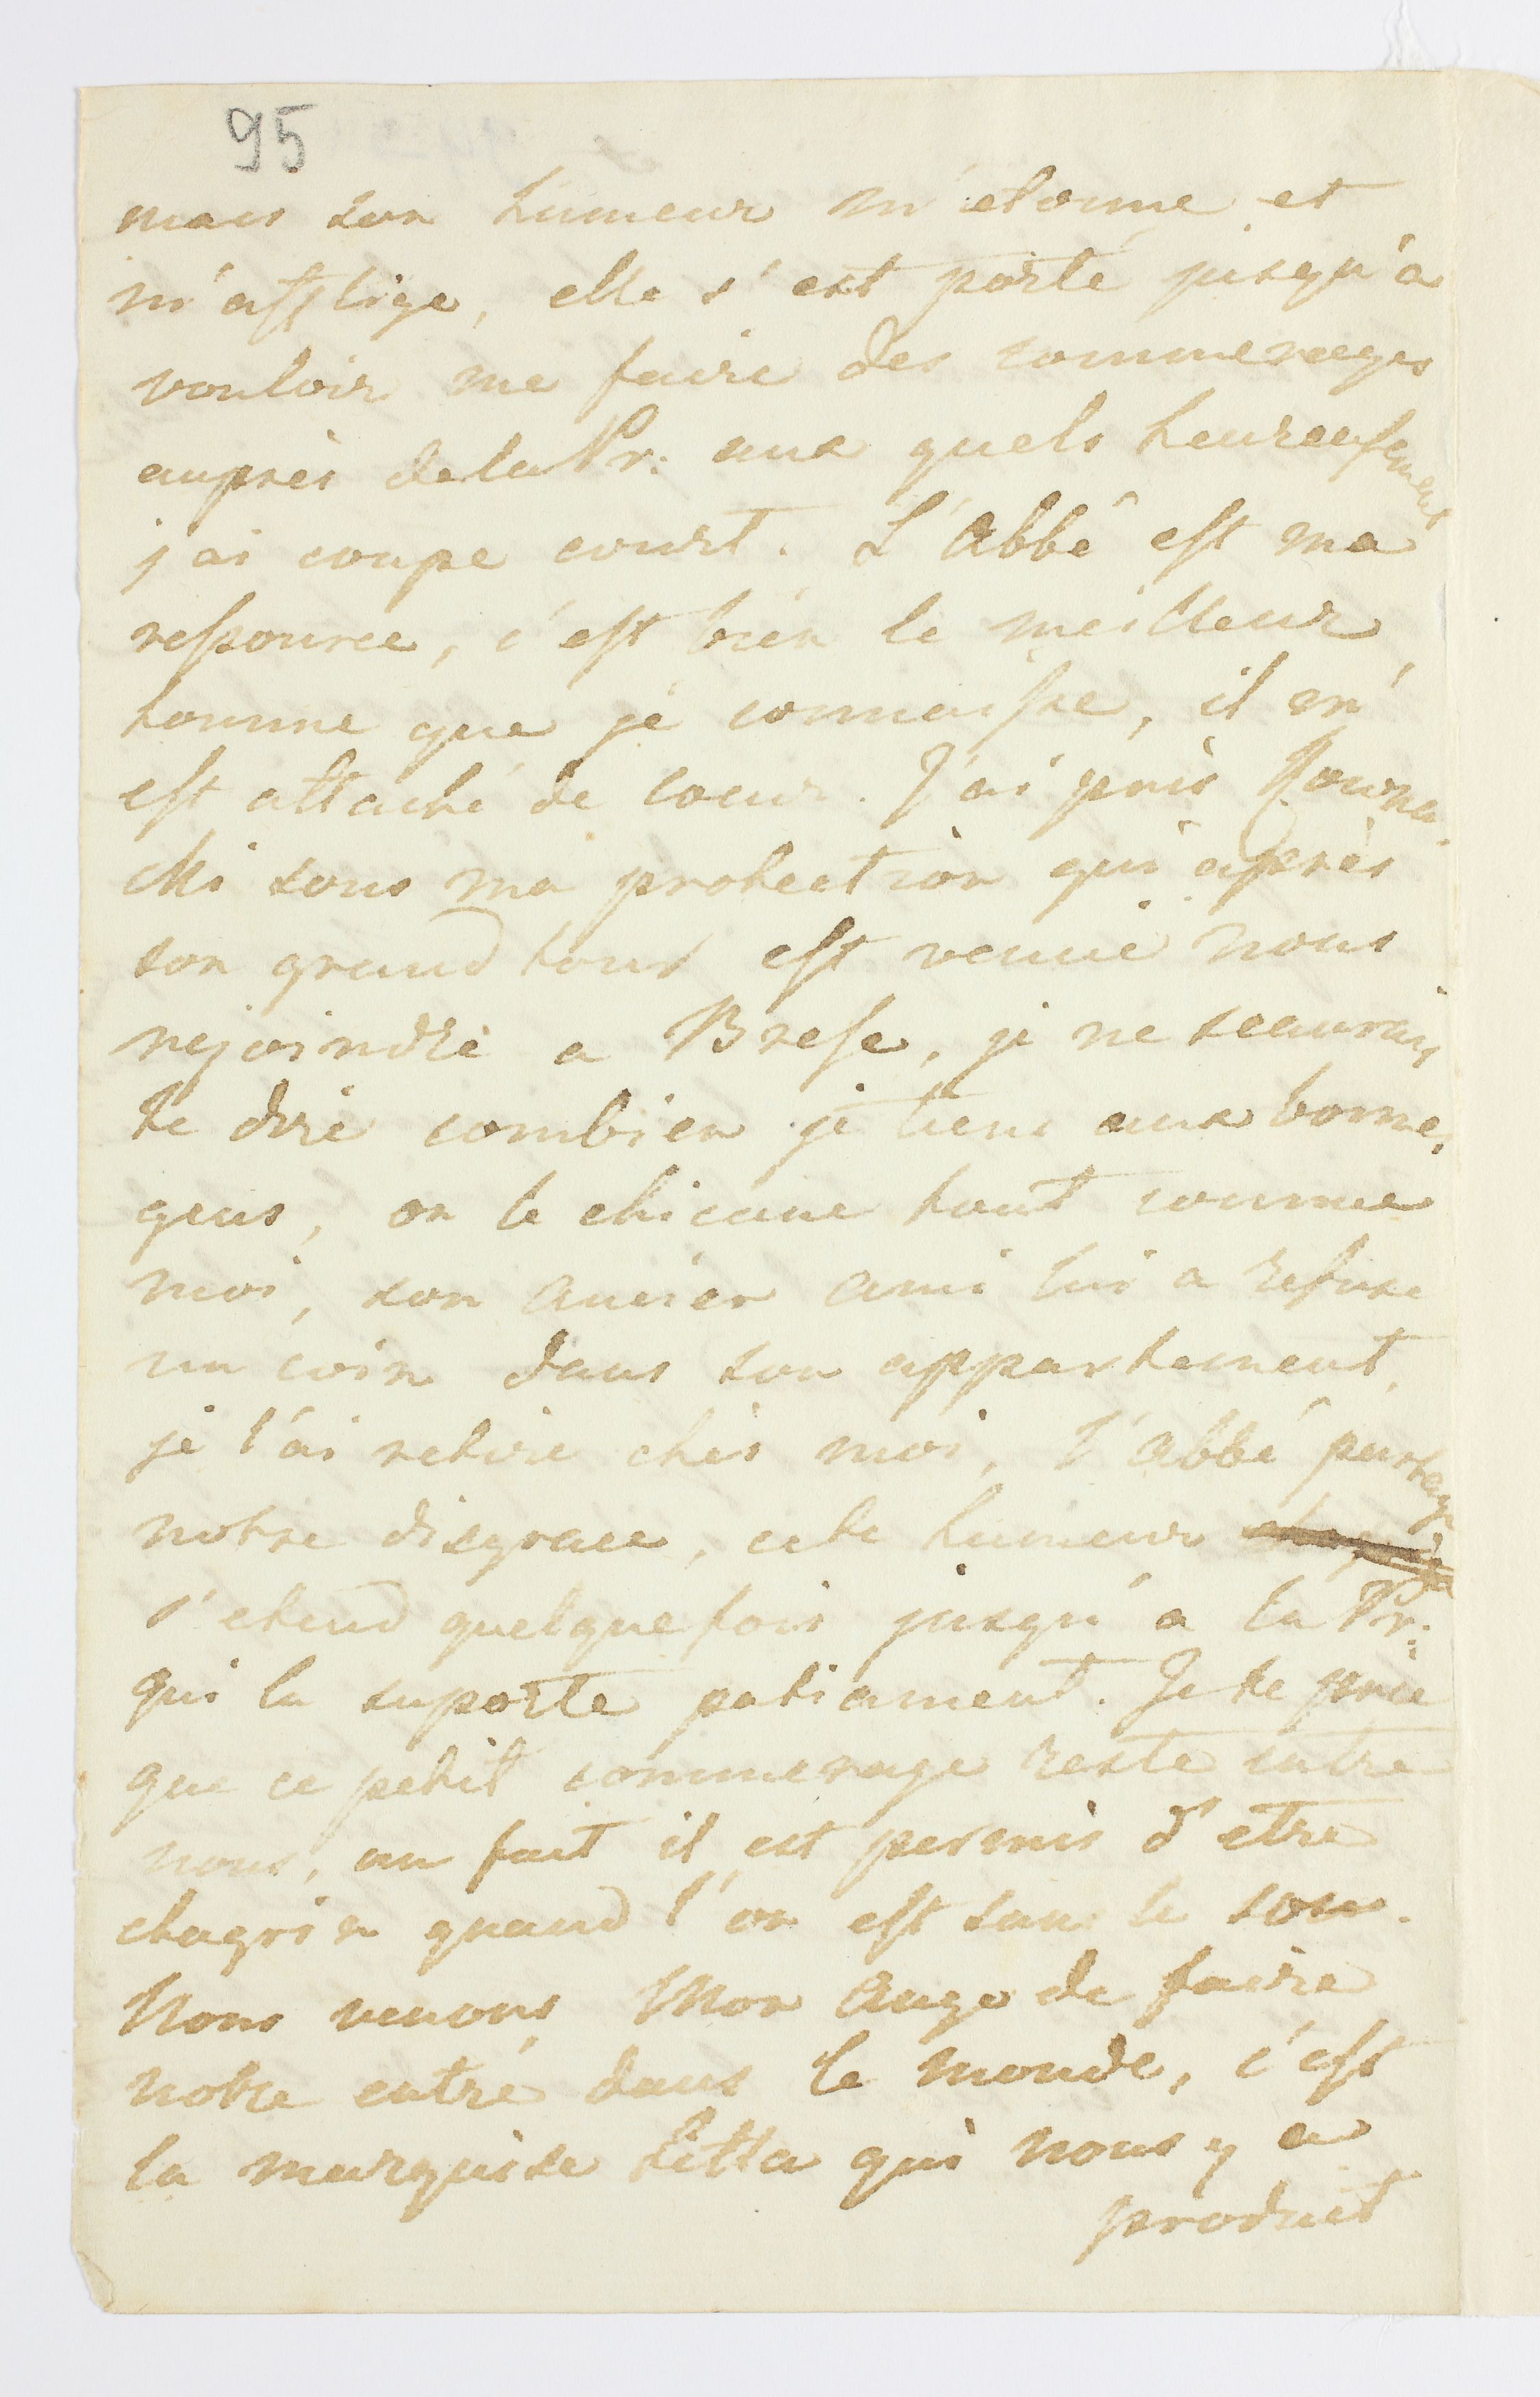 95
mais son humeur m'etonne et
m'afflige, elle s'est porté jusqu'a
vouloir me faire des commerages
auprès de la Pr: aux quels heureusement
j'ai coupe court. L'Abbé est ma
ressource, c'est bien le meilleur
homme que je connaisse, il m'
est attaché de coeur. J'ai pris
sous ma protection qui après
son grand tour est venue nous
rejoindre a Brese, je ne scaurais
te dire combien je tiens aux bonnes
gens, on le chicane tout comme
moi, son ancien ami lui a refuse
un coin dans son appartement,
je l'ai retire chès moi, l'abbé partage
notre disgrace, cete humeur
s'etend quelque fois jusqu'a la Pr:
qui la suporte patiament. Je te prie
que ce petit commerage reste entre
nous, au fait il est permis d'etre
chagrin quand l'on est sans le sou.
Nous venons Mon Ange de faire
notre entré dans le monde, c'est
la marquise Litta qui nous y a
produit